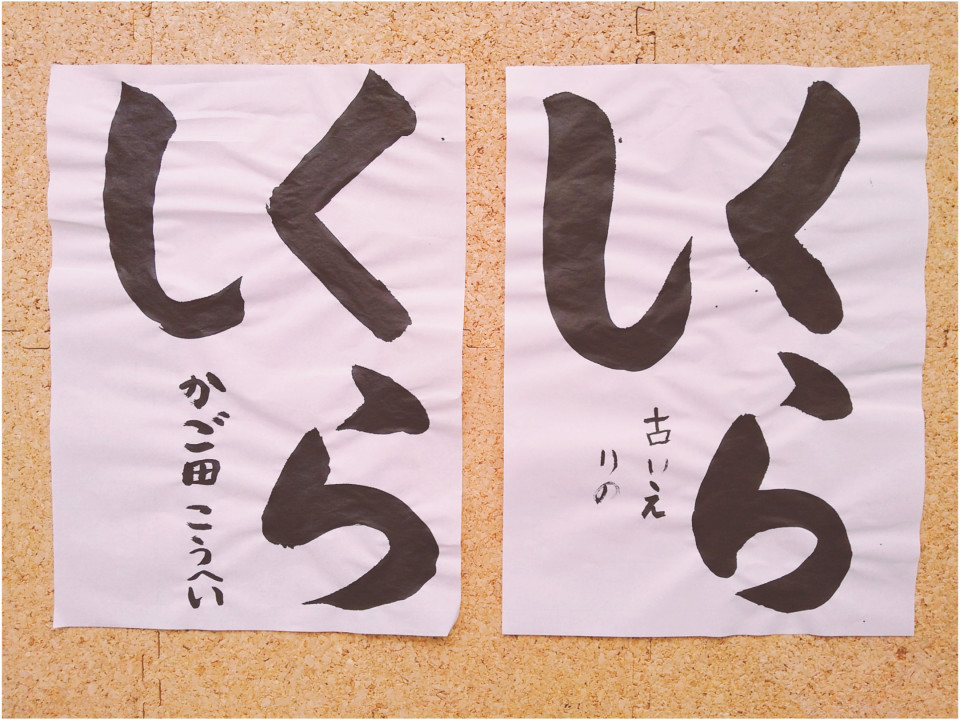 くら
し
古いえ
りの
くら
し
かご田 こうへい